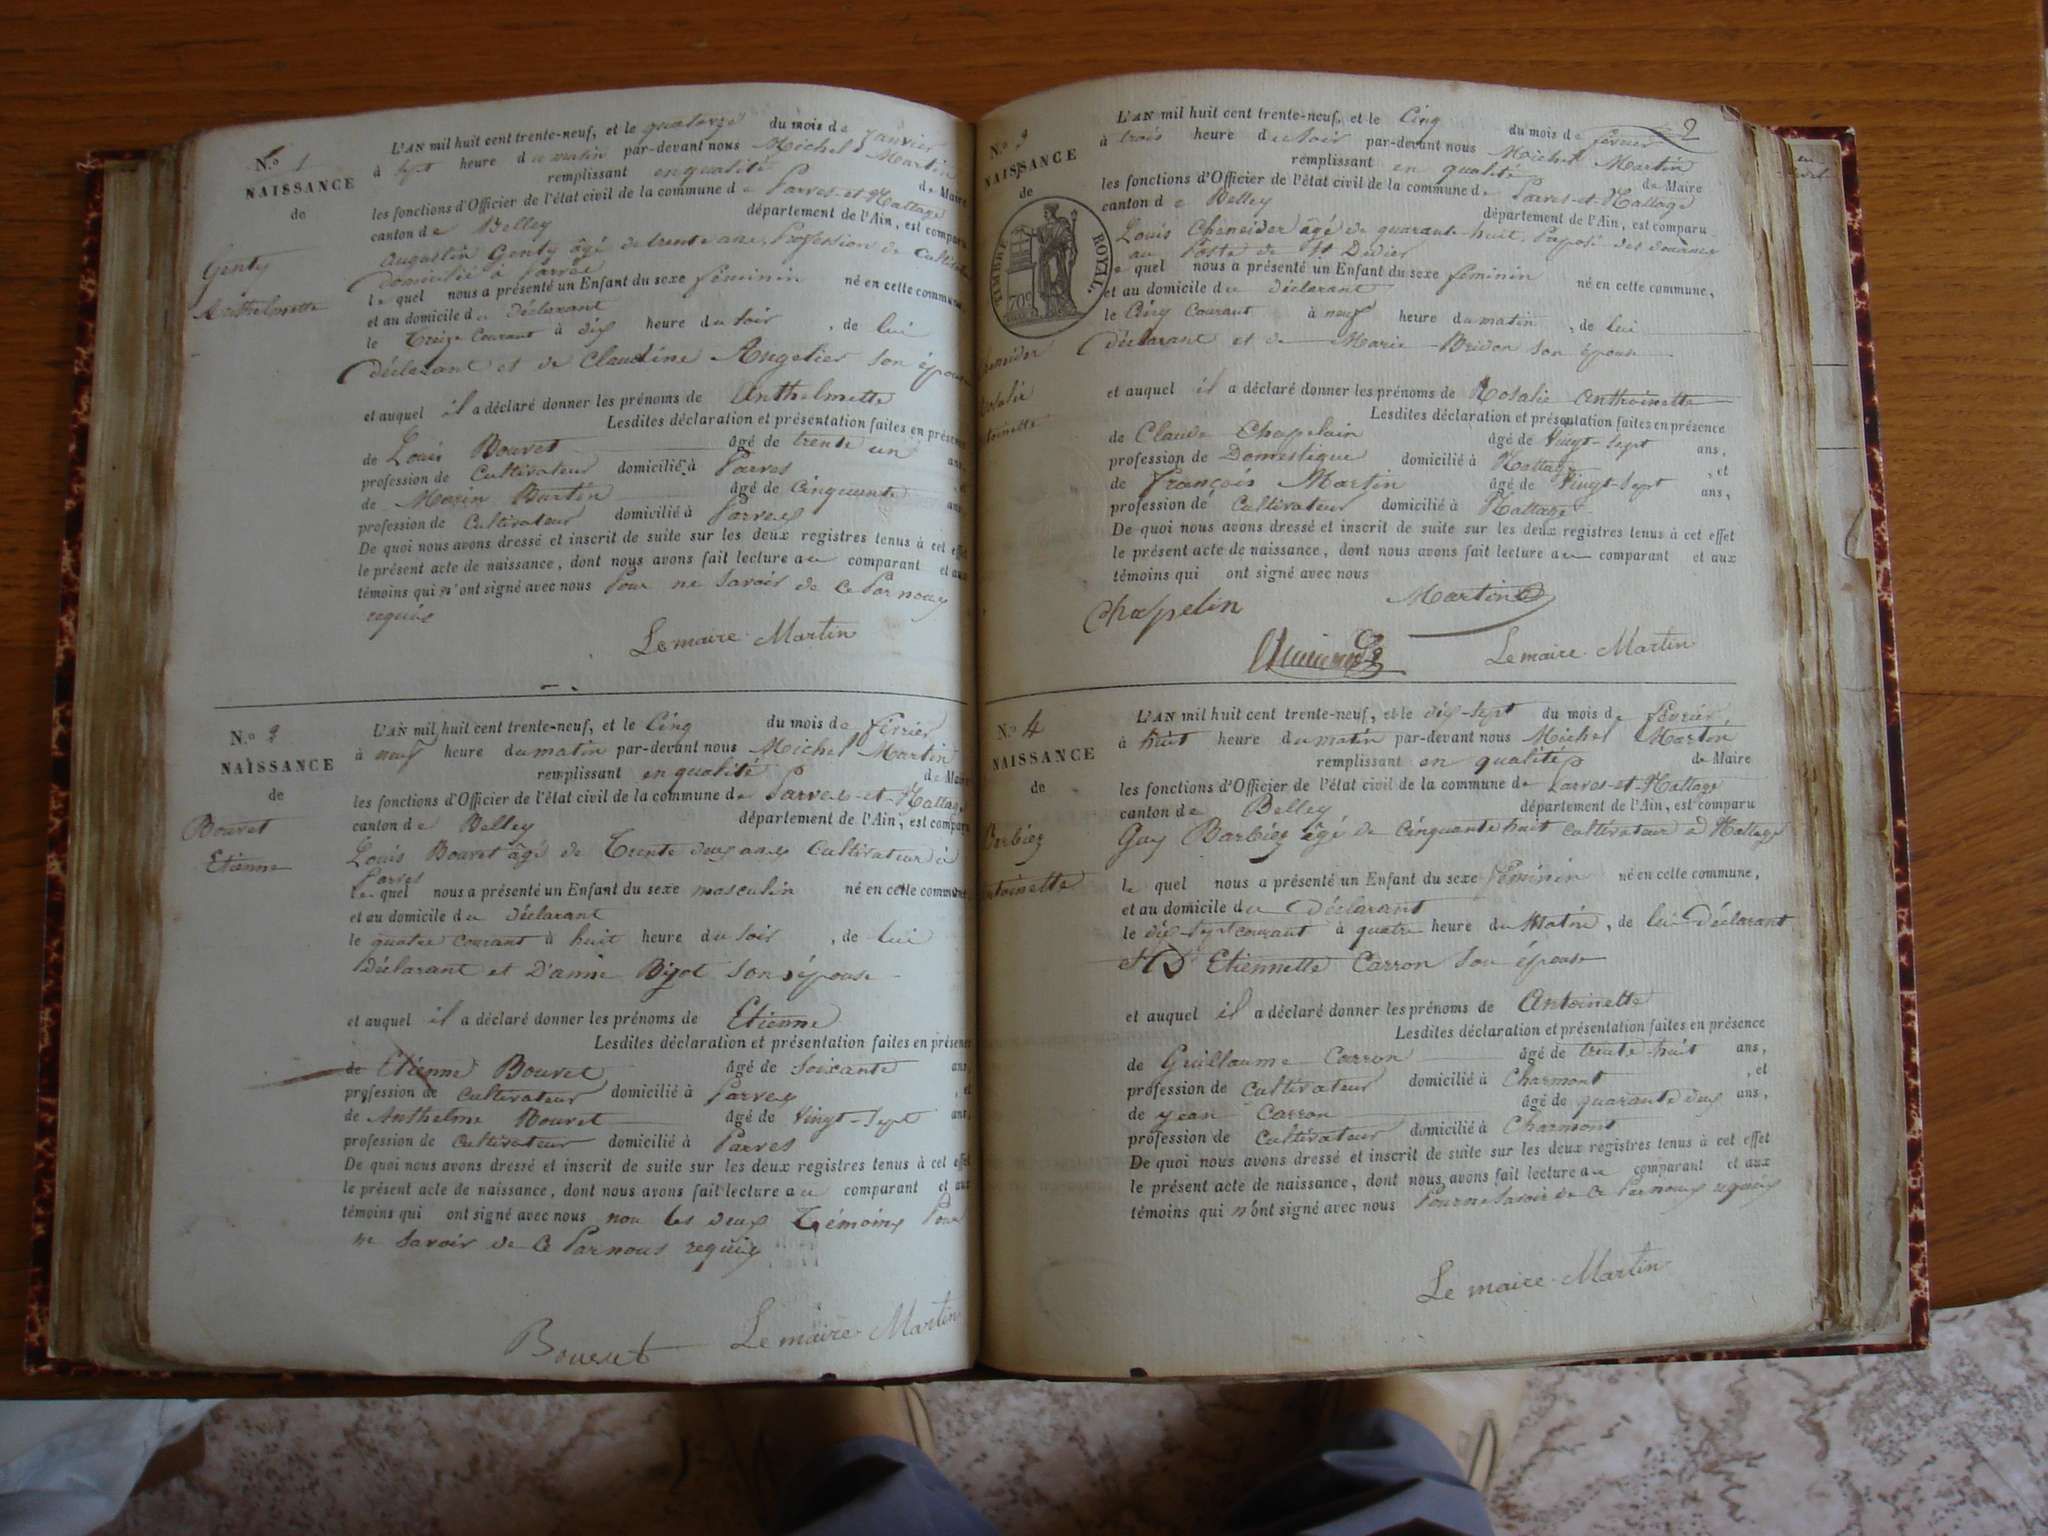 N.o 1
NAISSANCE
de
Genty
Anthelmette
L'AN mil huit cent trente-neuf, et le quatorze du mois de Janvier
à sept heure du matin par-devant nous Michel Martin
remplissant en qualité de Maire
les fonctions d'Officier de l'état civil de la commune de Parves-et-Nattage
canton de Belley département de l'Ain, est comparu
Augustin Genty âgé de trente ans, Profession de Cultivateur
domicilié à Parves
lequel nous a présenté un Enfant du sexe féminin né en cette commune,
et au domicile du déclarant
le treize courant à dix heure du soir , de lui
déclarant et de Claudine Angelier son épouse
et auquel il a déclaré donner les prénoms de Anthelmette
Lesdites déclaration et présentation faites en présence
de Louis Bouvet âgé de trente un ans,
profession de Cultivateur domicilié à Parves , et
de Marin Burtin âgé de cinquante ans,
profession de Cultivateur domicilié à Parves
De quoi nous avons dressé et inscrit de suite sur les deux registres tenus à cet effet
le présent acte de naissance, dont nous avons fait lecture au comparant et aux
témoins qui n'ont signé avec nous Pour ne savoir de ce Par nous
requis
Le maire Martin
N.o 2
NAISSANCE
de
Bouvet
Etienne
L'AN mil huit cent trente-neuf, et le Cinq du mois de février
à neuf heure du matin par-devant nous Michel Martin
remplissant en qualité de Maire
les fonctions d'Officier de l'état civil de la commune de Parves-et-Nattage
canton de Belley département de l'Ain, est comparu
Louis Bouvet âgé de Trente deux ans Cultivateur à
Parves
lequel nous a présenté un Enfant du sexe masculin né en cette commune
et au domicile du déclarant
le quatre courant à huit heure du soir , de lui
déclarant et D'anne Bijot son épouse
et auquel il a déclaré donner les prénoms de Etienne
Lesdites déclaration et présentation faites en présence
de Etienne Bouvet âgé de soixante ans,
profession de Cultivateur domicilié à Parves , et
de Anthelme Bouvet âgé de Vingt-Sept ans,
profession de Cultivateur domicilié à Parves
De quoi nous avons dressé et inscrit de suite sur les deux registres tenus à cet effet
le présent acte de naissance, dont nous avons fait lecture au comparant et aux
témoins qui ont signé avec nous non les deux Témoins Pour
ne savoir de ce Par nous requis
Bouvet Le maire Martin
2
N.o 3
NAISSANCE
de
TIMBRE ROYAL.
70c
Cheneider
Rosalie
L'AN mil huit cent trente-neuf, et le Cinq du mois de février
à trois heure du soir par-devant nous Michel Martin
remplissant en qualité de Maire
les fonctions d'Officier de l'état civil de la commune de Parves-et-Nattage
canton de Belley département de l'Ain, est comparu
Louis Cheneider âgé de quarante-huit, Préposé des douanes
au Poste de St Didier
lequel nous a présenté un Enfant du sexe féminin né en cette commune,
et au domicile du déclarant
le Cinq Courant à neuf heure du matin , de lui
déclarant et de Marie Bridon son épouse
et auquel il a déclaré donner les prénoms de Rosalie Anthoinette
Lesdites déclaration et présentation faites en présence
de Claude Chapelain âgé de Vingt-sept ans,
profession de Domestique domicilié à Nattage , et
de François Martin âgé de Vingt-sept ans,
profession de Cultivateur domicilié à Nattage
De quoi nous avons dressé et inscrit de suite sur les deux registres tenus à cet effet
le présent acte de naissance, dont nous avons fait lecture au comparant et aux
témoins qui ont signé avec nous
Chapelin Martin
Le maire Martin
N.o 4
NAISSANCE
de
Barbiez
Antoinette
L'AN mil huit cent trente-neuf, et le dix-sept du mois de février,
à huit heure du matin par-devant nous Michel Martin
remplissant en qualité de Maire
les fonctions d'Officier de l'état civil de la commune de Parves-et-Nattage
canton de Belley département de l'Ain, est comparu
Guy Barbiez âgé de Cinquante huit cultivateur à Nattage
lequel nous a présenté un Enfant du sexe féminin né en cette commune,
et au domicile du Déclarant
le dix-sept courant à quatre heure du Matin , de lui déclarant
et D' Etiennette Carron son épouse
et auquel il a déclaré donner les prénoms de Antoinette
Lesdites déclaration et présentation faites en présence
de Guillaume Carron âgé de trente-huit ans,
profession de Cultivateur domicilié à Charmont , et
de Jean Carron âgé de quarante deux ans,
profession de Cultivateur domicilié à Charmont
De quoi nous avons dressé et inscrit de suite sur les deux registres tenus à cet effet
le présent acte de naissance, dont nous avons fait lecture au comparant et aux
témoins qui n'ont signé avec nous Pour ne savoir de ce Par nous requis
Le maire Martin